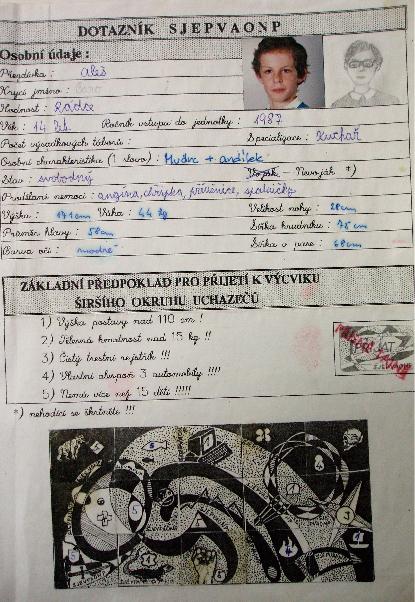 DOTAZNÍK SJEPVAONP
Osobní údaje :
Přezdívka : Aleš
Krycí jméno :
Hodnost : Rádce
Věk : 14 let Ročník vstupu do jednotky : 1987
Počet výsadkových táborů : Specializace : Kuchař
Osobní charakteristika (1 slovo) : Mudrc + andílek
Stav : svobodný Voják Nevoják *)
Prodělané nemoci : angína, chřipka, příušnice, spalničky
Výška : 171 cm Váha : 44 kg Velikost nohy : 28 cm
Průměr hlavy : 58 cm Šířka hrudníku : 78 cm
Barva očí : modré Šířka v pase : 68 cm
ZÁKLADNÍ PŘEDPOKLAD PRO PŘIJETÍ K VÝCVIKU
ŠIRŠÍHO OKRUHU UCHAZEČŮ
1) Výška postavy nad 110 cm !
2) Tělesná hmotnost nad 15 kg !!
3) Čistý trestní rejstřík !!!
4) Vlastní alespoň 3 automobily !!!!
5) Nemá více než 15 dětí !!!!!
PŘIJAT
*) nehodící se škrtněte !!!
5
4
2
3
5
1
4
6